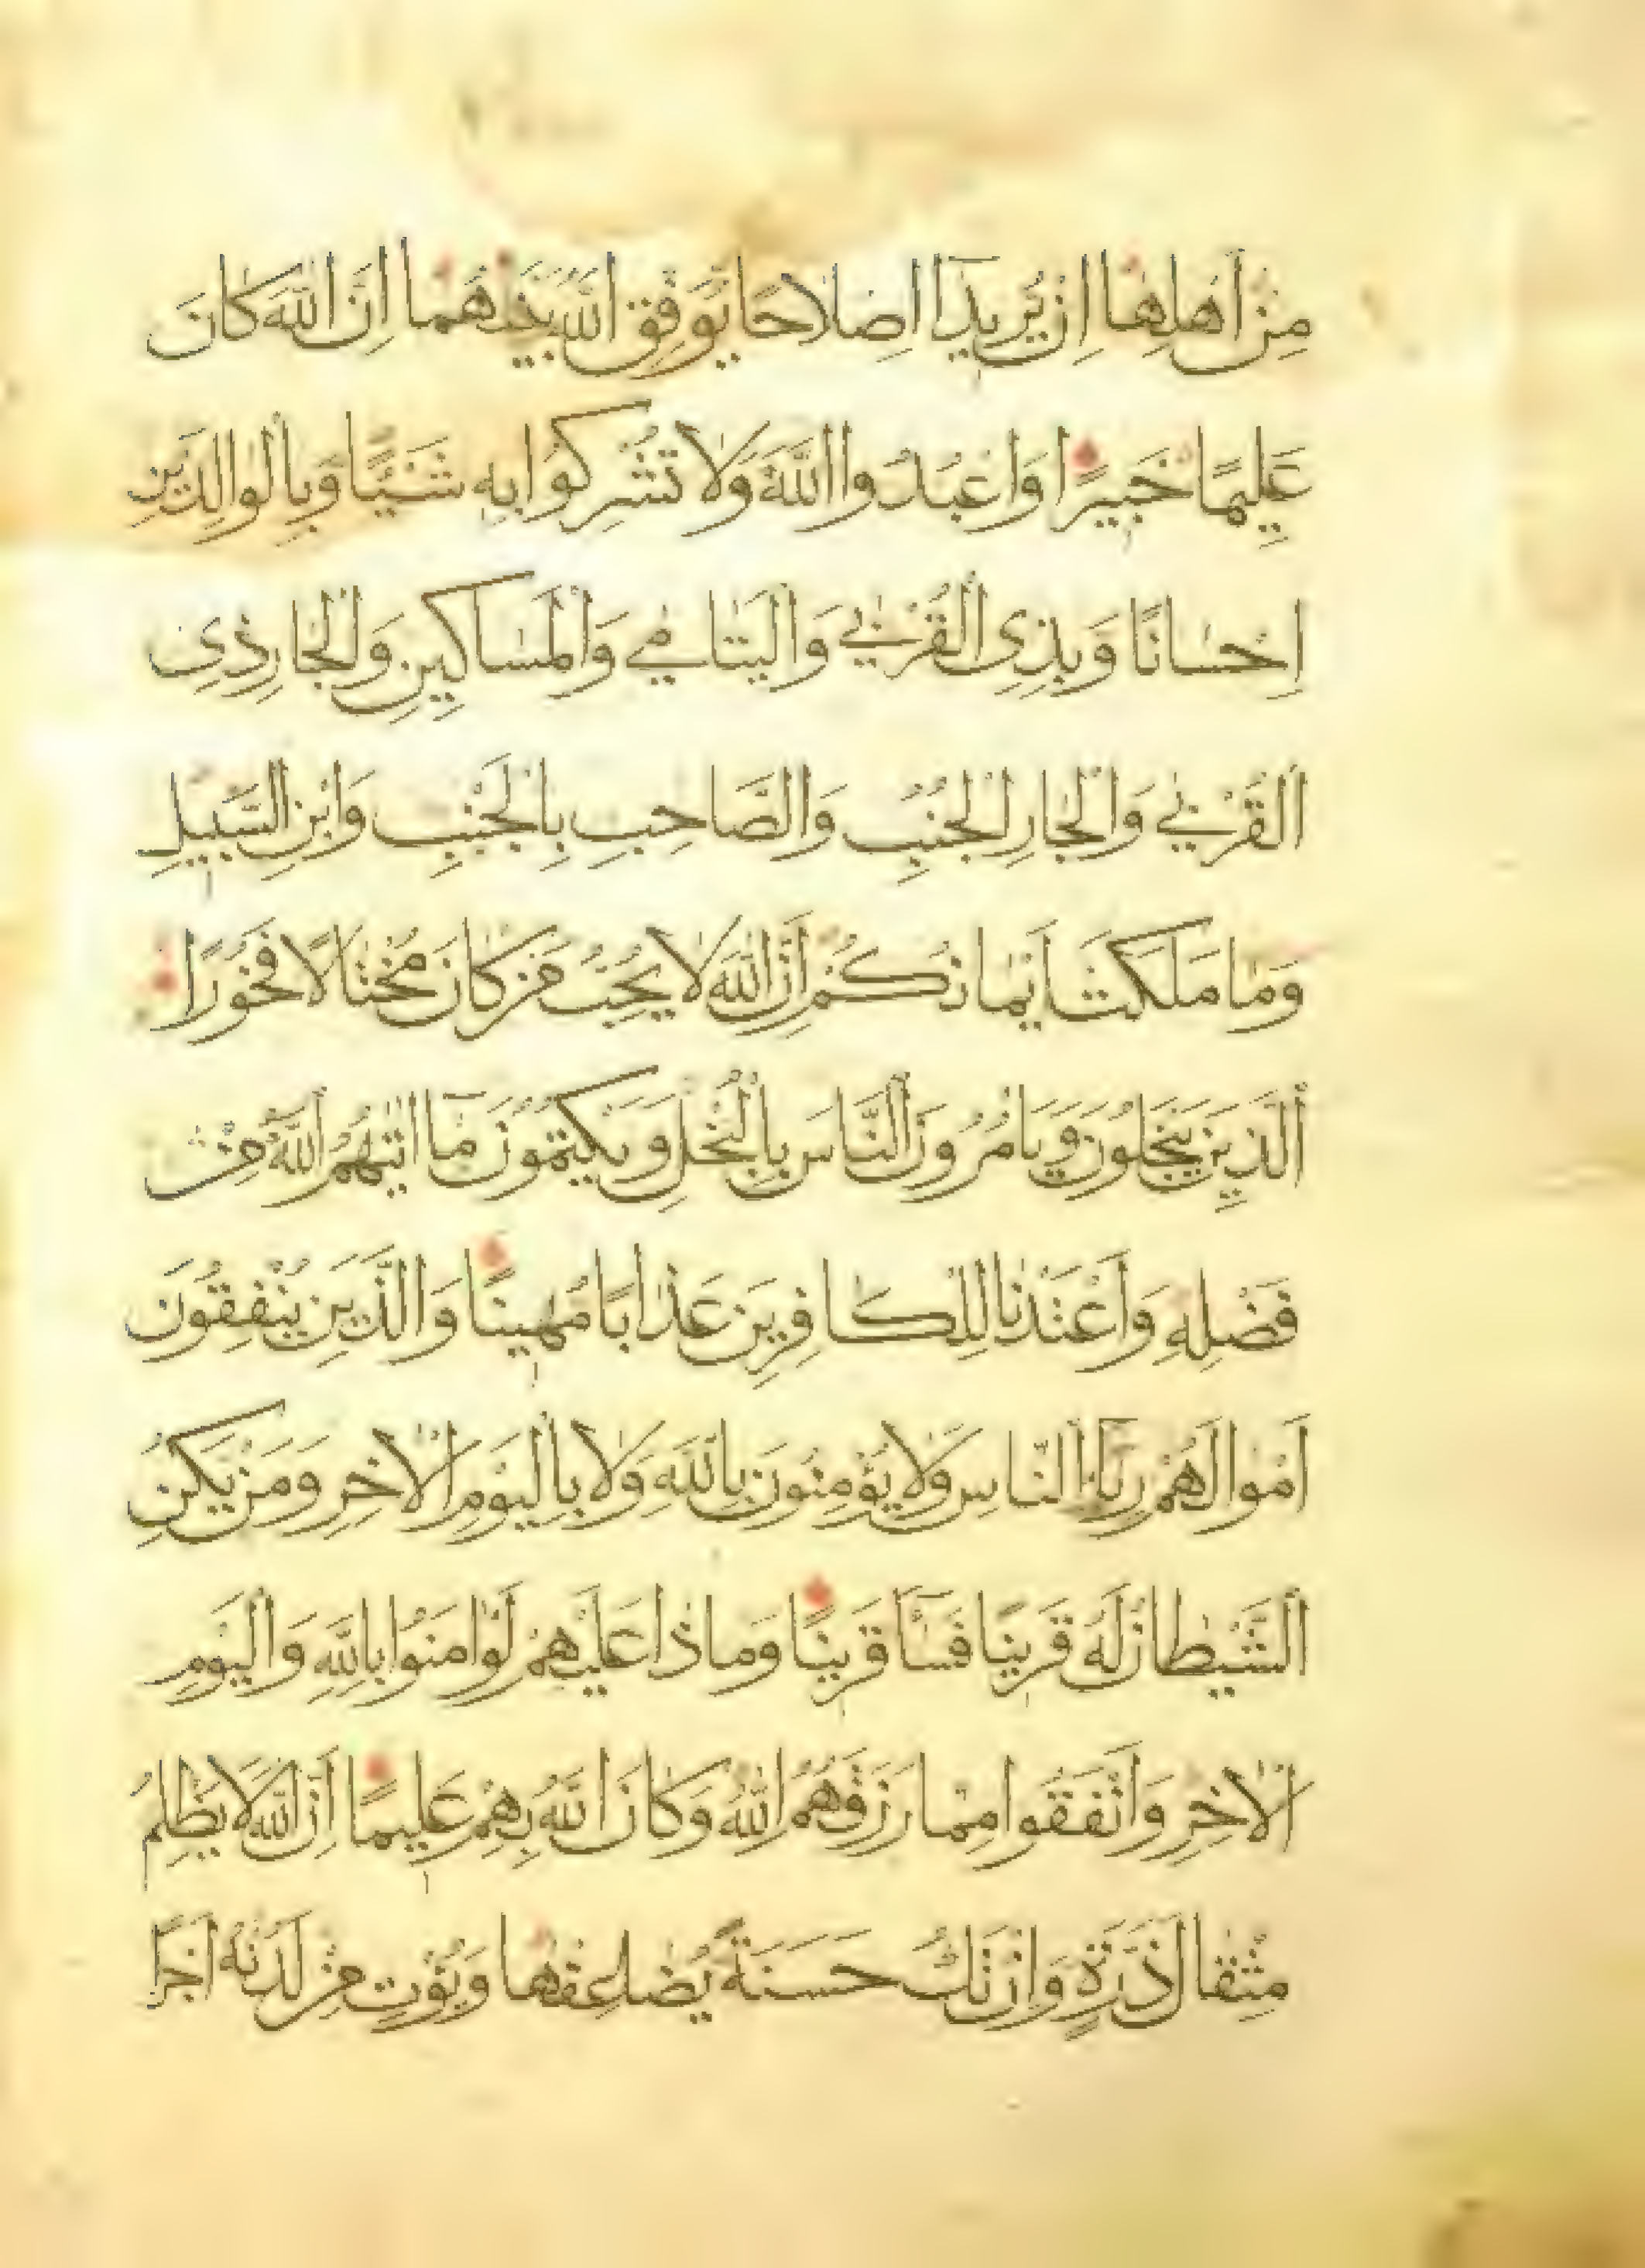 مِنْ اَهْلِهَا اِنْ يُرِيدَآ اِصْلَاحًا يُوَفِّقِ اللّٰهُ بَيْنَهُمَا اِنَّ اللّٰهَ كَانَ
عَلِيمًا خَبِيرًا وَاعْبُدُوا اللّٰهَ وَلَا تُشْرِكُوا بِهِ شَيْـًٔا وَبِالْوَالِدَيْنِ
اِحْسَانًا وَبِذِى الْقُرْبٰي وَالْيَتَامٰي وَالْمَسَاكِينِ وَالْجَارِ ذِى
الْقُرْبٰي وَالْجَارِ الْجُنُبِ وَالصَّاحِبِ بِالْجَنْبِ وَابْنِ السَّبِيلِ
وَمَا مَلَكَتْ اَيْمَانُكُمْ اِنَّ اللّٰهَ لَا يُحِبُّ مَنْ كَانَ مُخْتَالًا فَخُورًا
الَّذِينَ يَبْخَلُونَ وَيَامُرُونَ النَّاسَ بِالْبُخْلِ وَيَكْتُمُونَ مَآ اٰتٰيهُمُ اللّٰهُ مِنْ
فَضْلِهِ وَاَعْتَدْنَا لِلْكَافِرِينَ عَذَابًا مُهِينًا وَالَّذِينَ يُنْفِقُونَ
اَمْوَالَهُمْ رِئَآءَ النَّاسِ وَلَا يُؤْمِنُونَ بِاللّٰهِ وَلَا بِالْيَوْمِ الْاٰخِرِ وَمَنْ يَكُنِ
الشَّيْطَانُ لَهُ قَرِينًا فَسَآءَ قَرِينًا وَمَاذَا عَلَيْهِمْ لَوْ اٰمَنُوا بِاللّٰهِ وَالْيَوْمِ
الْاٰخِرِ وَاَنْفَقُوا مِمَّا رَزَقَهُمُ اللّٰهُ وَكَانَ اللّٰهُ بِهِمْ عَلِيمًا اِنَّ اللّٰهَ لَا يَظْلِمُ
مِثْقَالَ ذَرَّةٍ وَاِنْ تَكُ حَسَنَةً يُضٰاعِفْهَا وَيُؤْتِ مِنْ لَدُنْهُ اَجْرًا